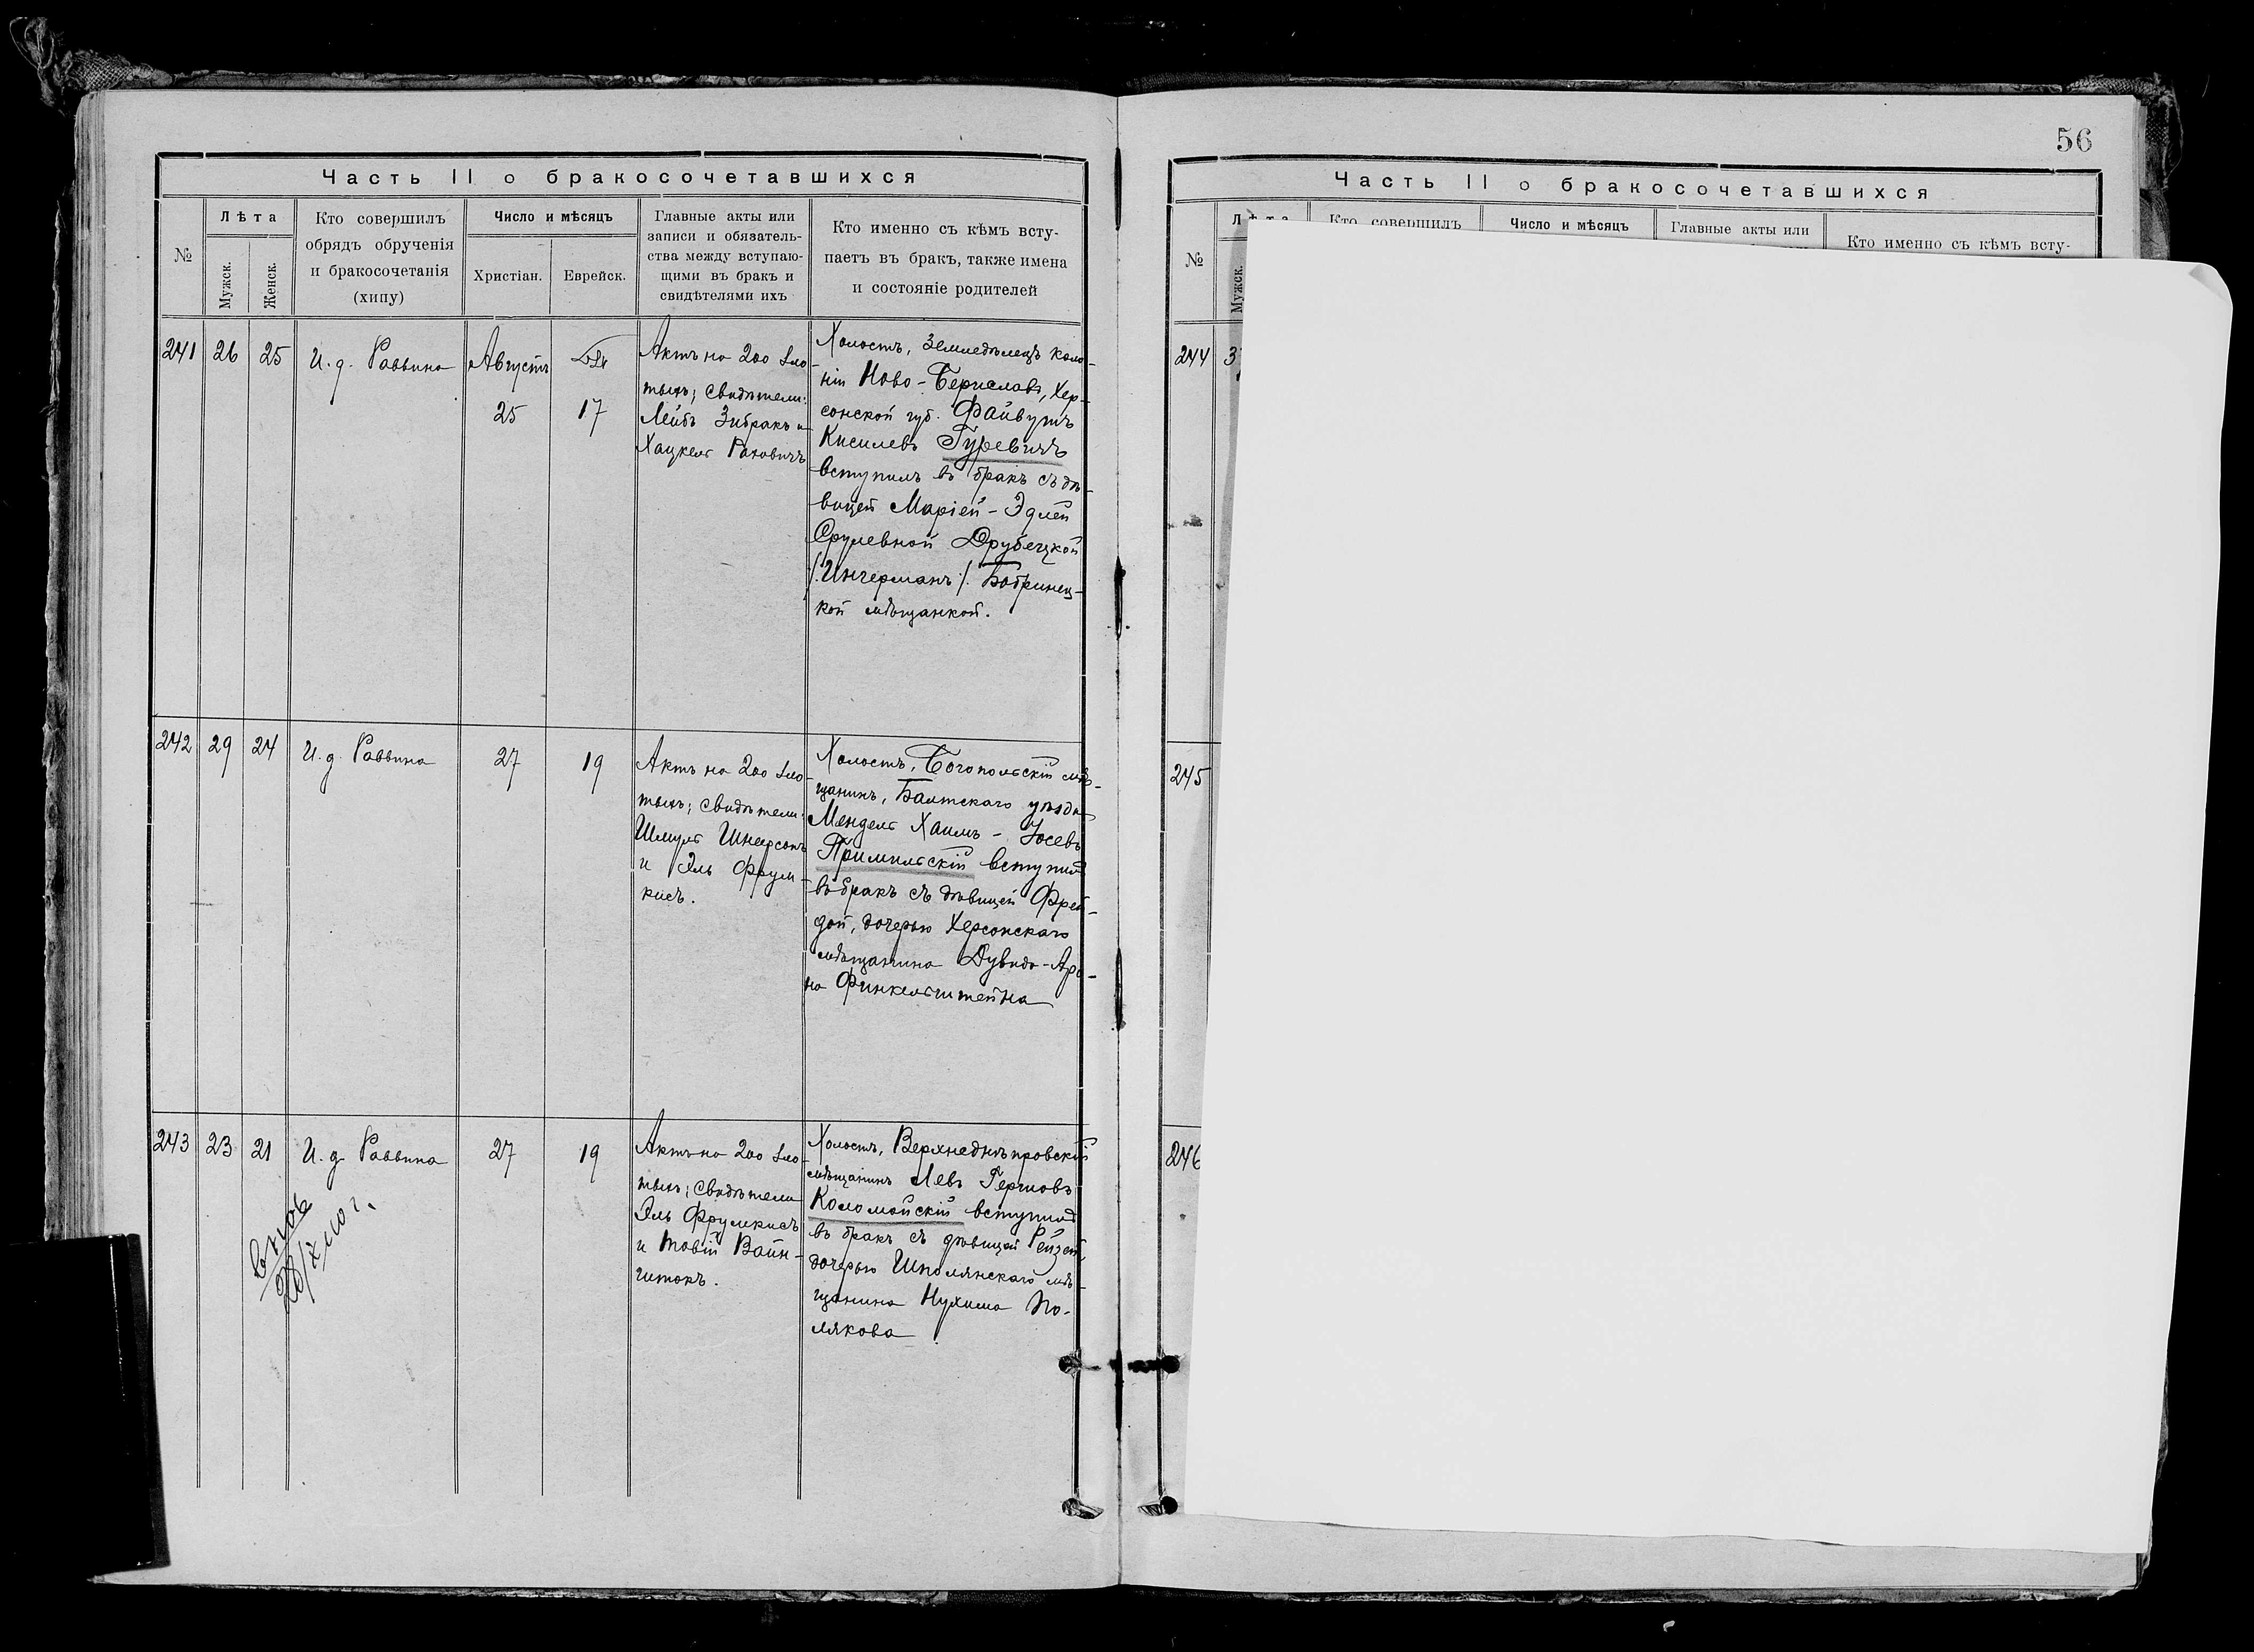 56
Часть II о бракосочетавшихся
№
Лѣта
Мужск.
Женск.
Кто совершилъ
обрядъ обрученія
и бракосочетанія
(хипу)
Число и мѣсяцъ
Христіан.
Еврейск.
Главные акты или
записи и обязатель-
ства между вступаю-
щими въ бракъ и
свидѣтелями ихъ
Кто именно съ кѣмъ всту-
паетъ въ бракъ, также имена
и состояніе родителей
241
26
25
И. д. Раввина
Августъ
25
17
Актъ на 200 зло-
тыхъ; свидѣтели:
Лейбъ Зибракъ и
Хацкель Раковичъ
Холостъ, Земледѣлецъ коло-
ніи Ново-Бериславъ, Хер-
сонской губ. Файвушъ
Кисилевъ Гуревичъ
вступилъ въ бракъ съ дѣ-
вицей Маріей-Эдлей
Срулевной Друбецкой
/:Ингерманъ:/ Бобринец-
кой мѣщанкой.
242
29
24
И. д. Раввина
27
19
Актъ на 200 зло-
тыхъ; свидѣтели:
Шмуль Шнеерсонъ
и Эль Фрум-
кисъ.
Холостъ, Богопольскій мѣ-
щанинъ, Балтскаго уѣзда
Мендель Хаимъ-Іосевъ
Примильскій вступилъ
въ бракъ съ дѣвицей Фрей-
дой, дочерью Херсонскаго
мѣщанина Дувидъ-Аро-
на Финкельштейна
243
23
21
И. д. Раввина
27
19
Актъ на 200 зло-
тыхъ; свидѣтели
Эль Фрумкисъ
и Товій Вайн-
штокъ.
Холостъ, Верхнеднѣпровскій
мѣщанинъ Левъ Гершовъ
Коломойскій вступилъ
въ бракъ съ дѣвицей Рейзей,
дочерью Шполянскаго мѣ-
щанина Нухима По-
лякова
Часть II о бракосочетавшихся
№
Лѣта
Мужск.
Кто совершилъ
Число и мѣсяцъ
Главные акты или
Кто именно съ кѣмъ всту-
244
3
245
246